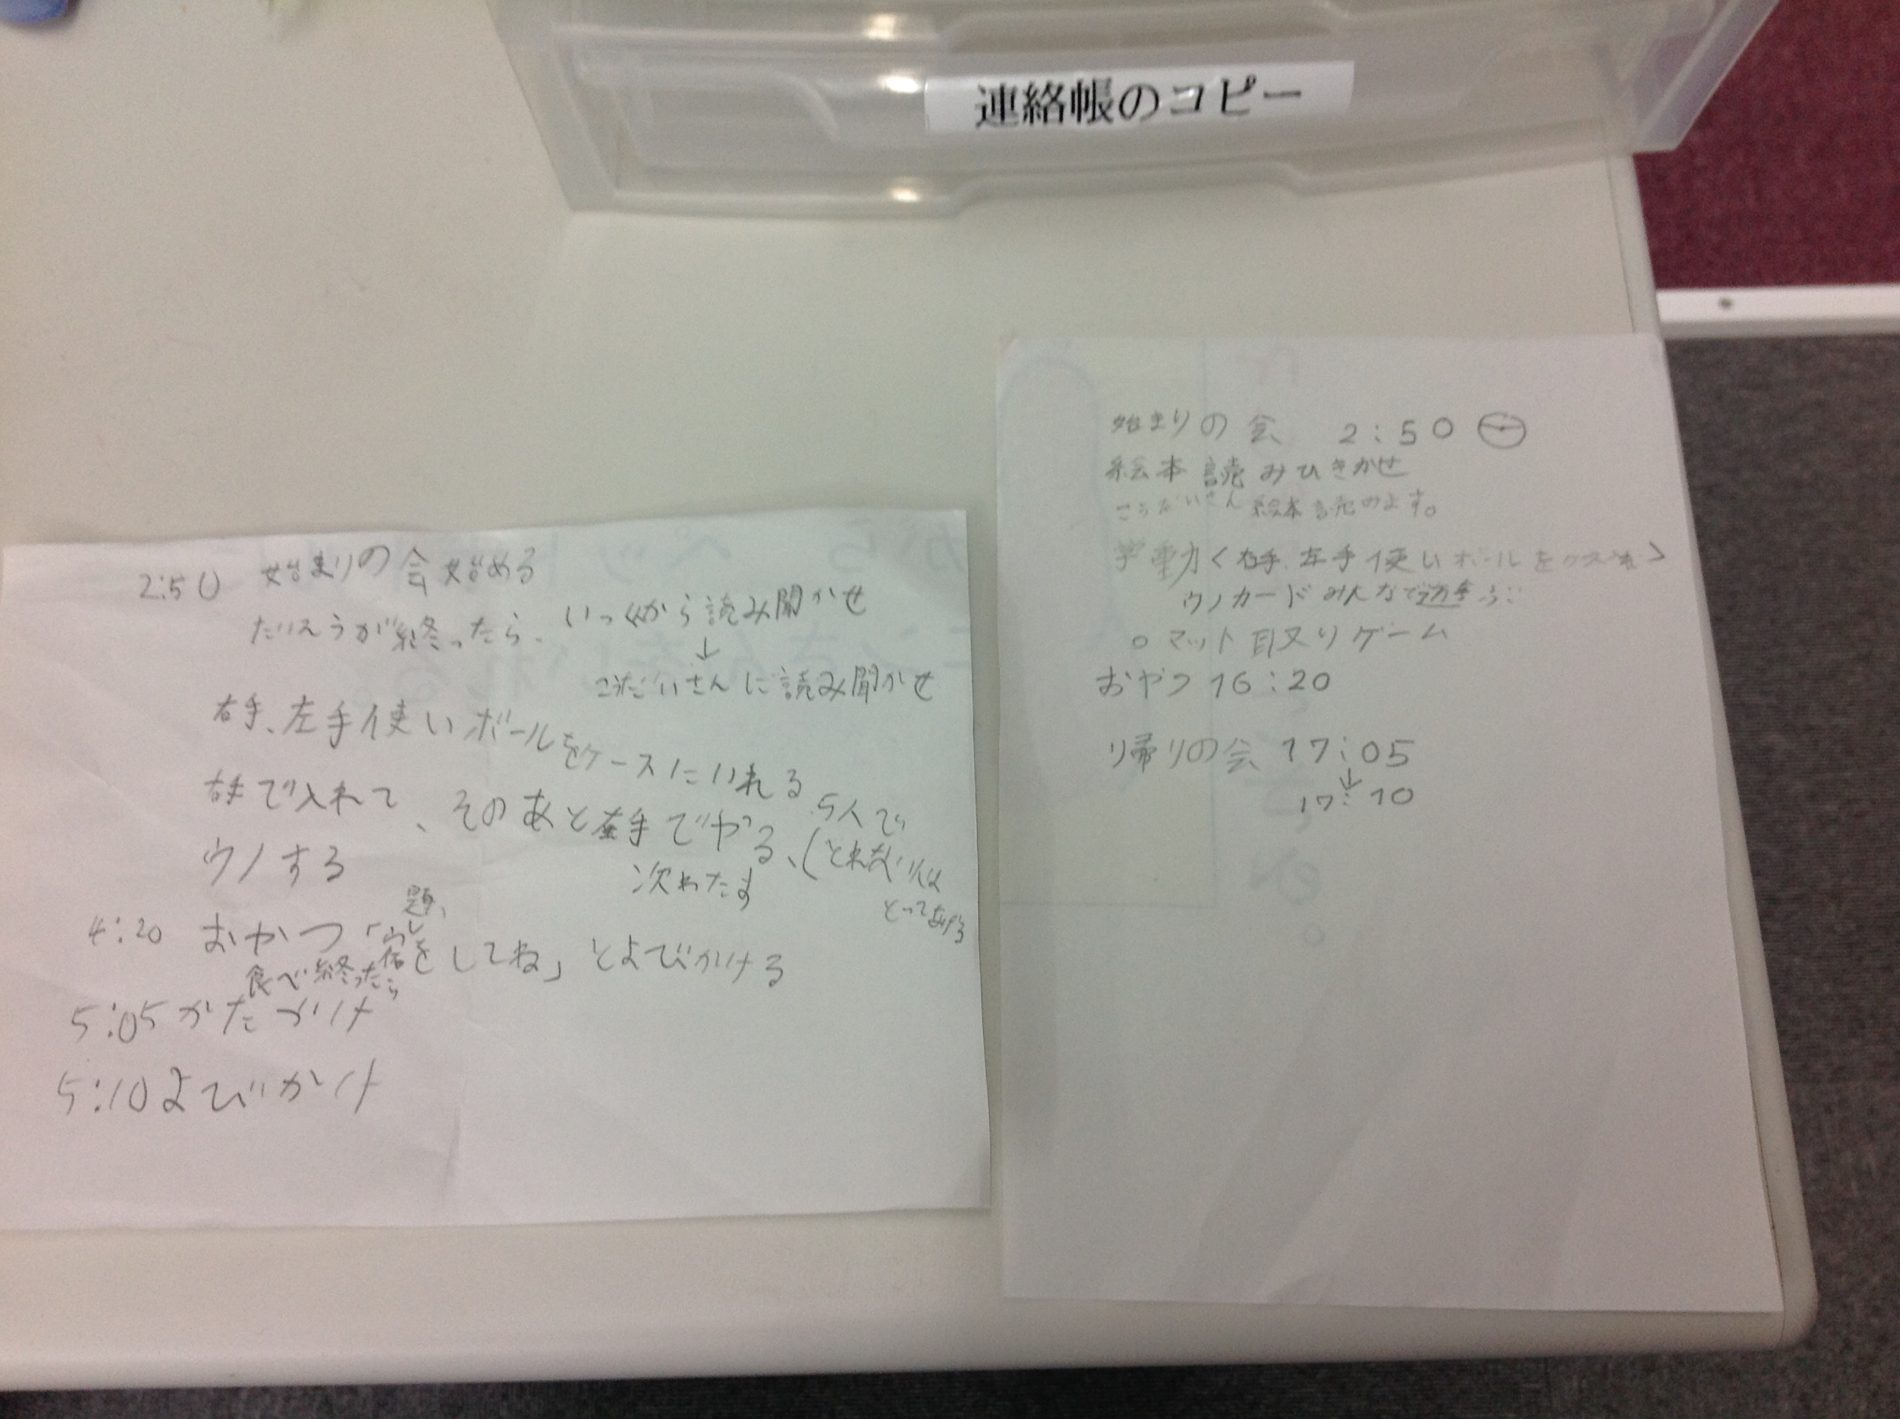 連絡帳のコピー
2:50 始まりの会 始める
が終ったら、いっくから読み聞かせ
↓
さんに読み聞かせ
右手、左手使いボールをケースにいれる
右手で入れて、そのあと左手でやる、5人で
ウノする
次わたす
(とれない人は
とってあげる
4:20 おやつ「宿題をしてね」とよびかける
食べ終ったら
5:05 かたづけ
5:10 よびかけ
始まりの会 2:50
絵本 読みひきかせ
さん 絵本読みます。
右手、左手使いボールを
ウノカード みんなで遊ぶ
○マット取りゲーム
おやつ 16:20
帰りの会 17:05
↓
17:10